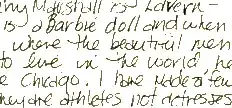 my Marshall is Lavern-
is a Barbie doll and when
where the beautiful men
to live in the world, he
Chicago. I have made a few
they are athletes not actresses